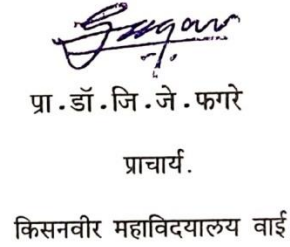 प्रा.डॉ.जि.जे.फगरे
प्राचार्य.
किसनवीर महाविदयालय वाई